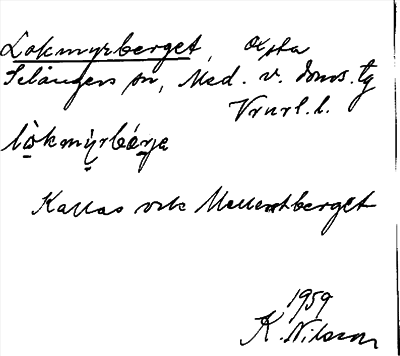 Lokmyrberget, Östa
Selångers sn, Med. v. doms. tg
Vrurl. l.
lòkmỳrbérje
Kallas ock Mellanberget
1959
K. Nilsson